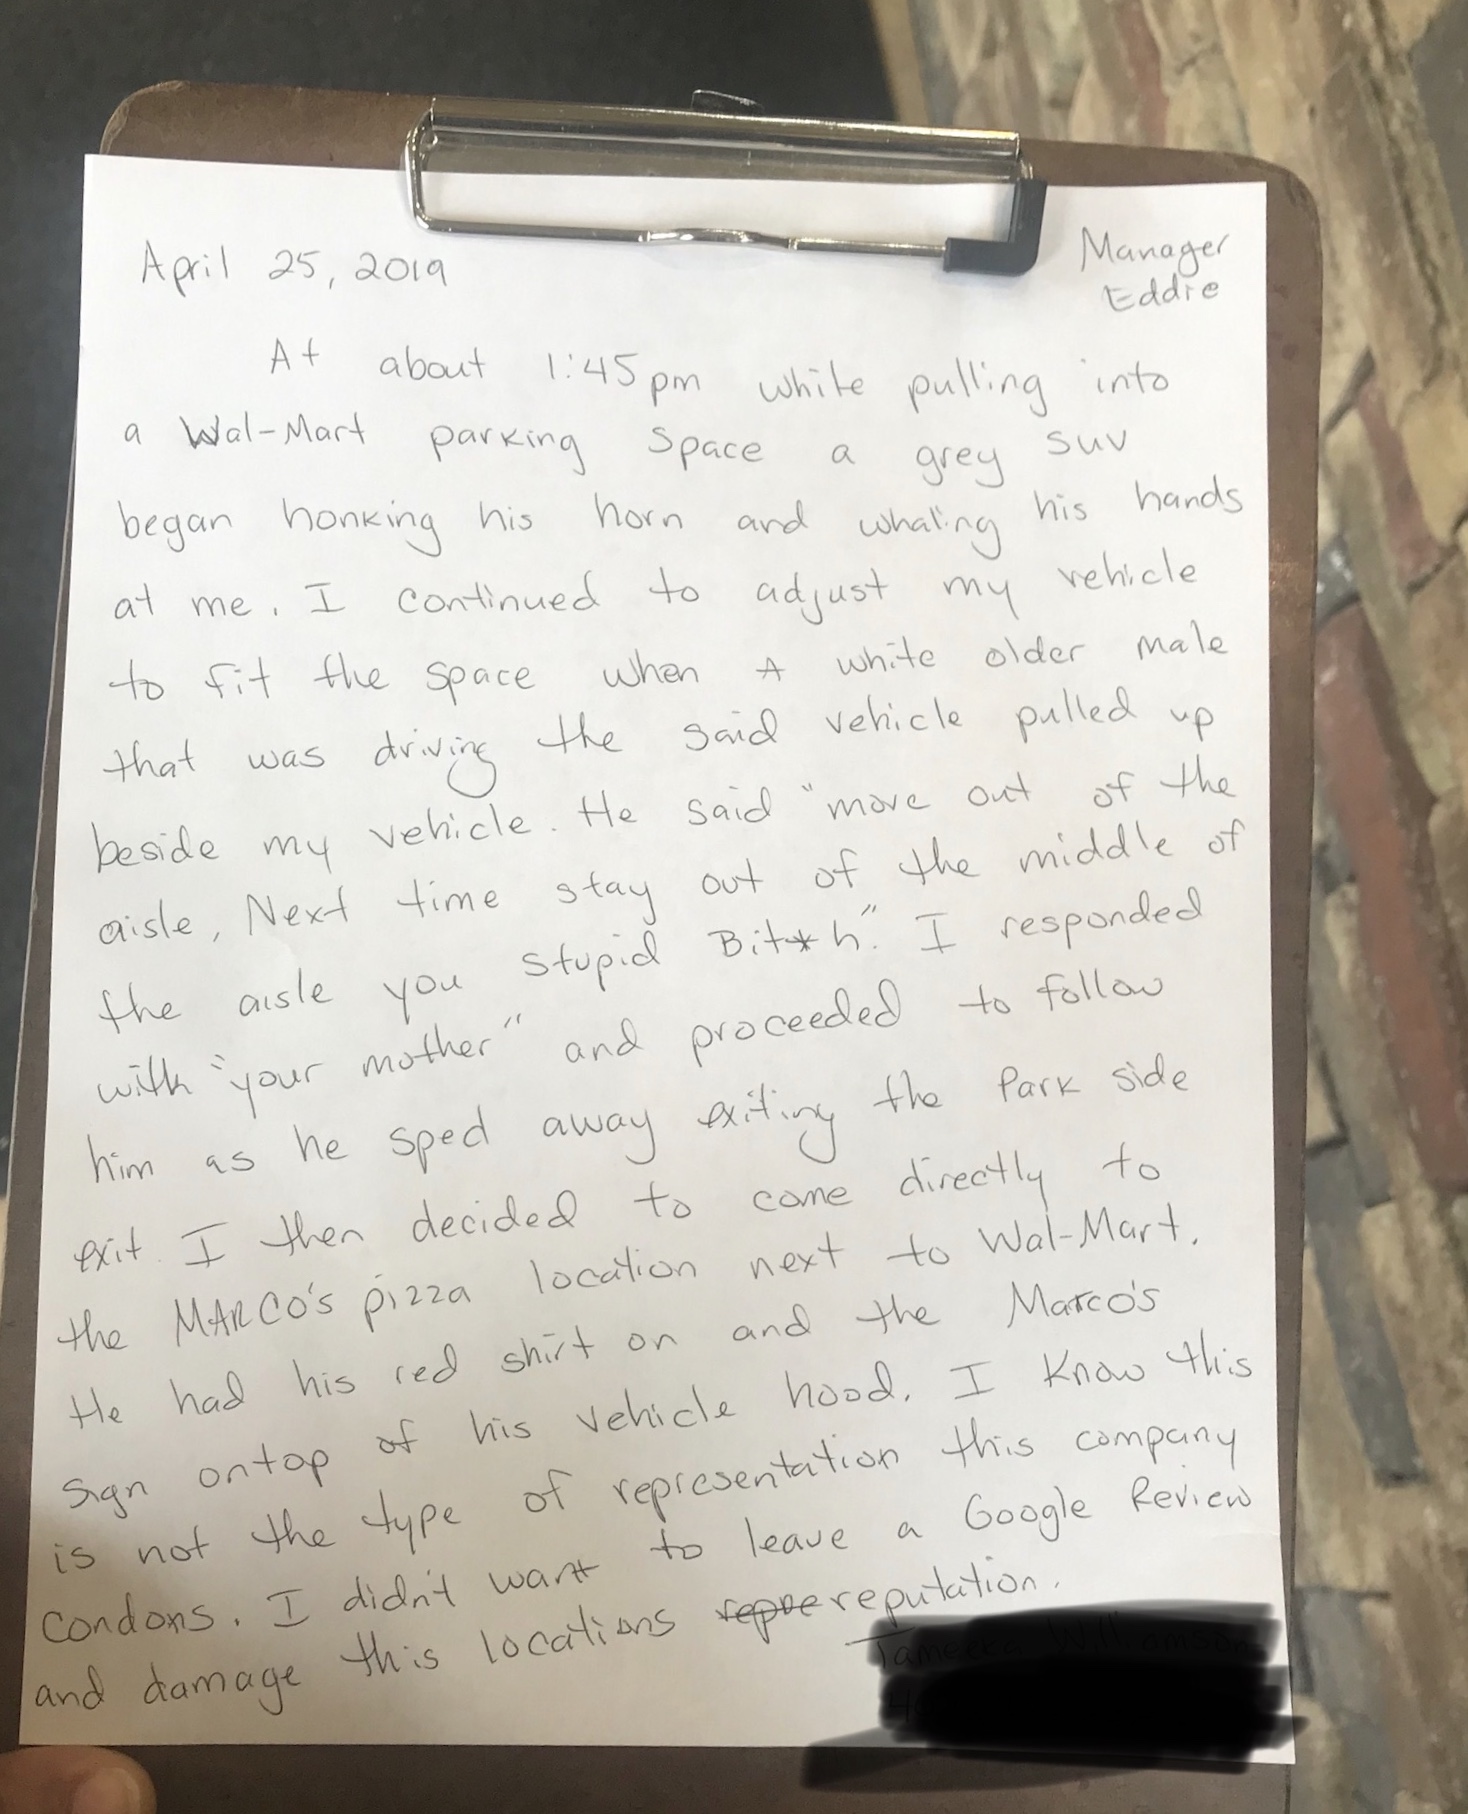 April 25, 2019
Manager
Eddie
At about 1:45pm while pulling into
a Wal-Mart parking space a grey suv
began honking his horn and whaling his hands
at me. I continued to adjust my vehicle
to fit the space when A white older male
that was driving the said vehicle pulled up
beside my vehicle. He said "move out of the
aisle, Next time stay out of the middle of
the aisle you stupid Bit*h". I responded
with "your mother" and proceeded to follow
him as he sped away exiting the Park side
exit. I then decided to come directly to
the MARCO'S pizza location next to Wal-Mart.
He had his red shirt on and the Marco's
sign ontop of his vehicle hood. I know this
is not the type of representation this company
condons. I didn't want to leave a Google Review
and damage this locations repre reputation.